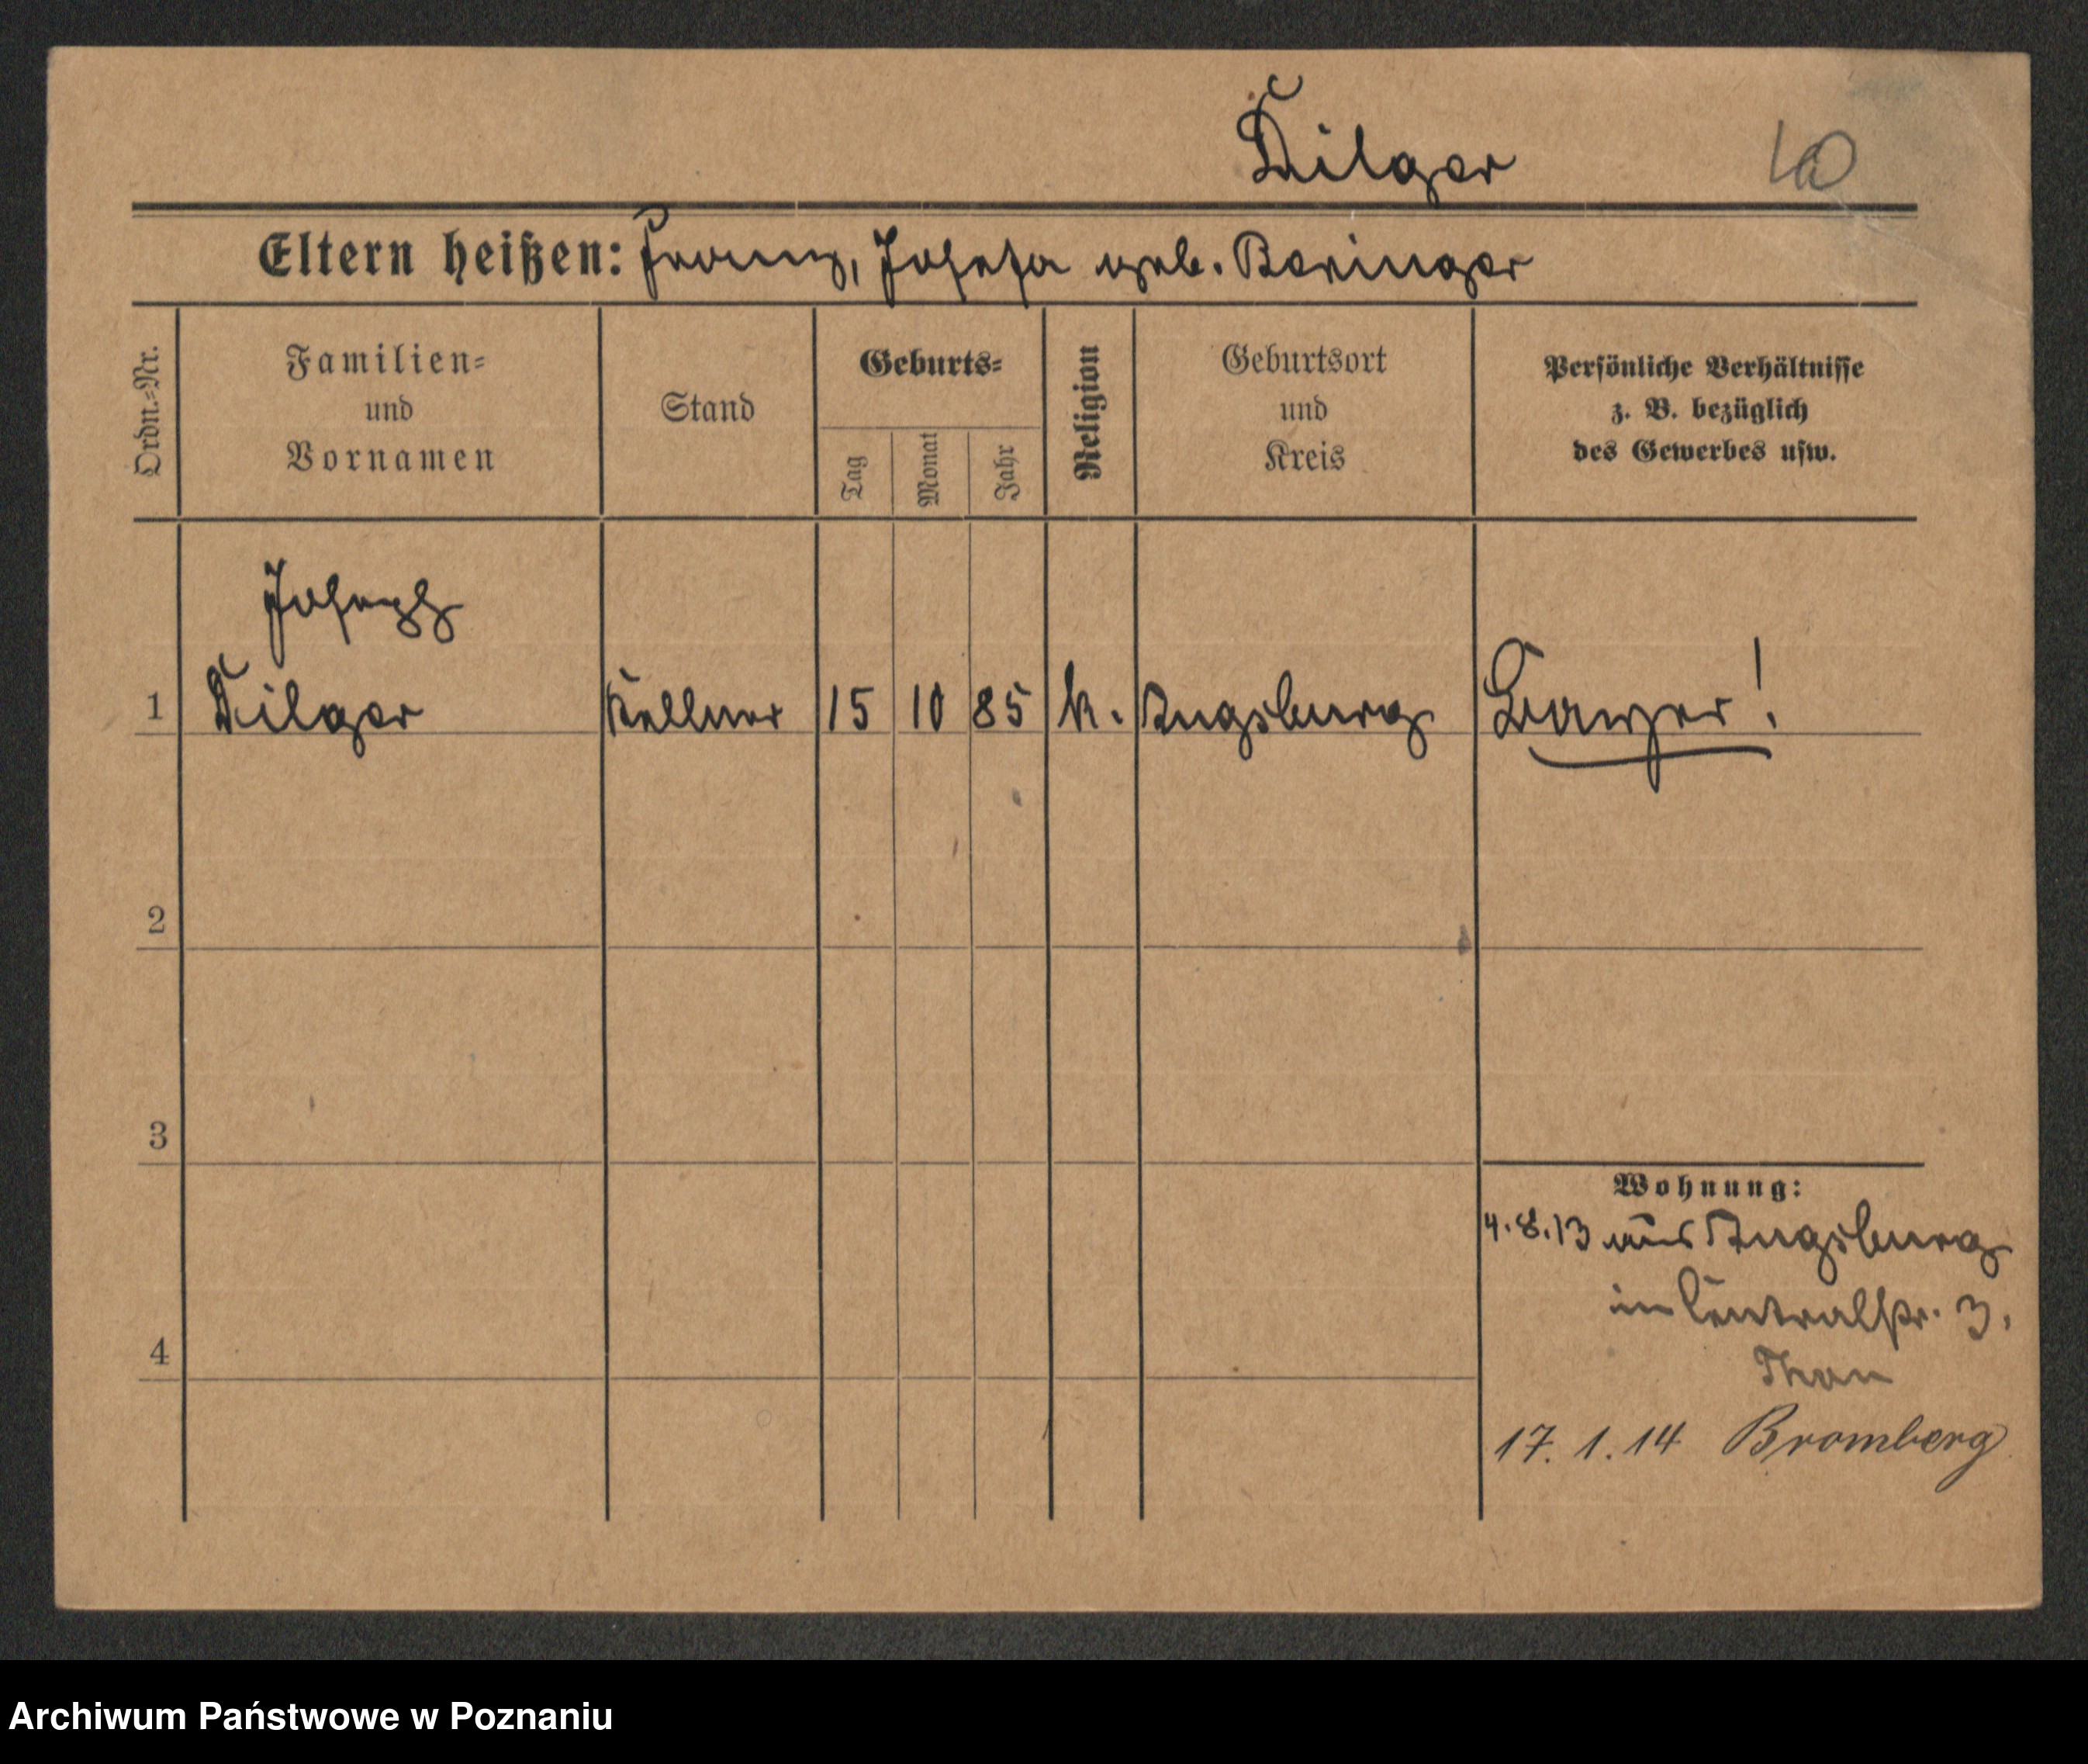 Dilger
Eltern heißen: Franz, Josefa geb. Beringer
Ordn.-Nr.
Familien-
und
Vornamen
Stand
Geburts-
Tag
Monat
Jahr
Religion
Geburtsort
und
Kreis
Persönliche Verhältnisse
z. B. bezüglich
des Gewerbes usw.
Joseph
1 Dilger Kellner 15 10 85 k. Augsburg Bayer!
2
3
4
Wohnung:
4.8.13 aus Augsburg
in Centralstr. 3.
17. 1. 14 Bromberg
Archiwum Państwowe w Poznaniu